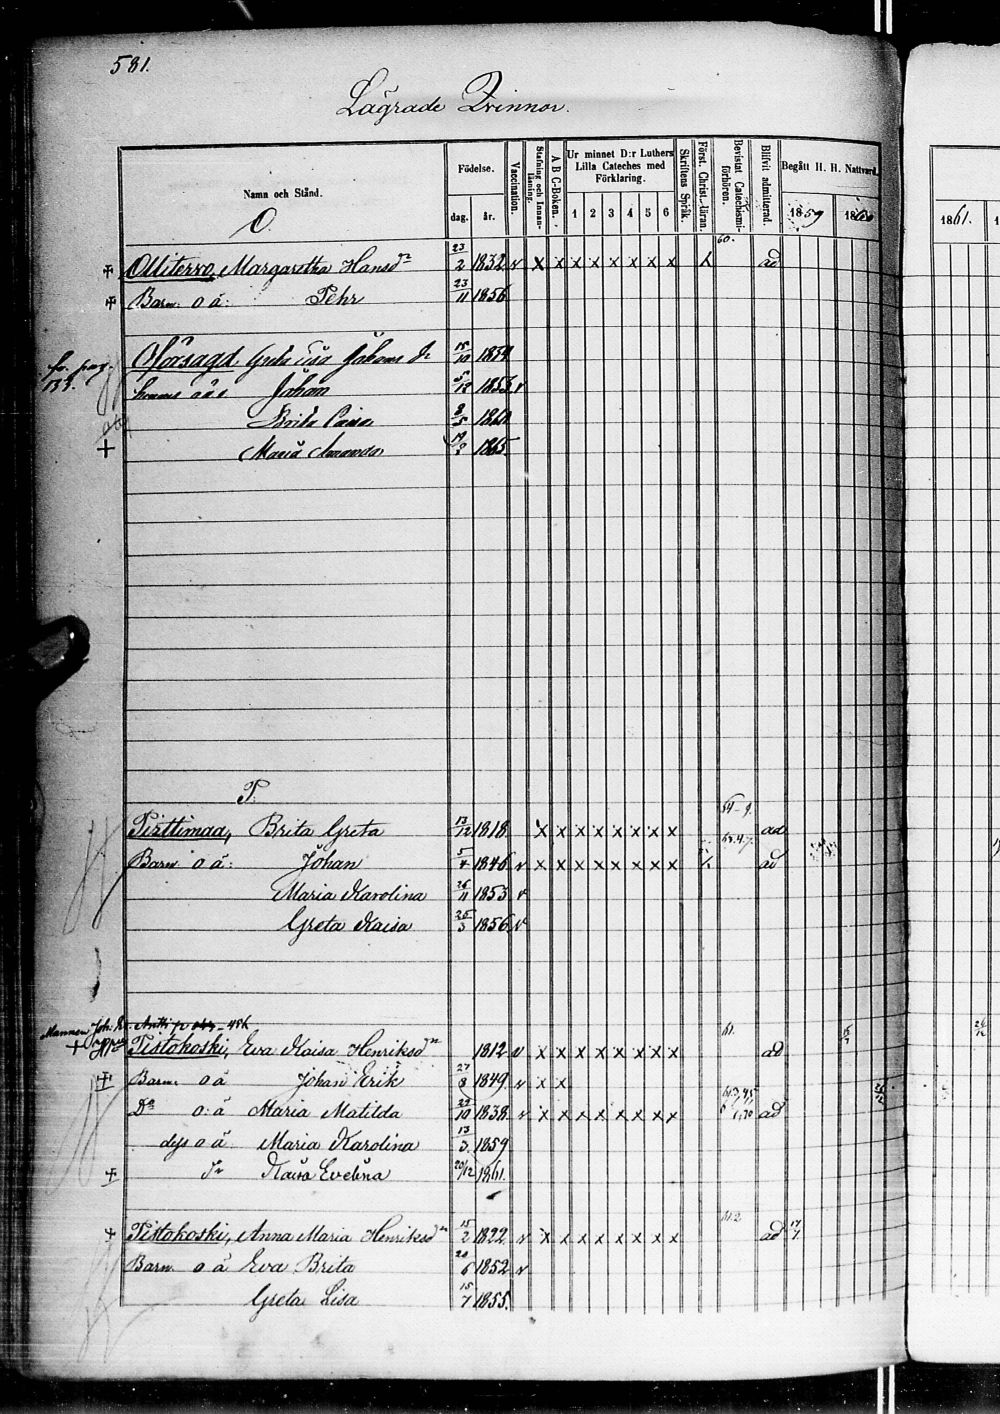 581.
Lägrade Qvinnor.
Namn och Stånd.
Födelse.
dag. år.
Vaccination.
Stafning och Innanläsning.
A B C-Boken.
Ur minnet D:r Luthers Lilla Cateches med Förklaring.
1 2 3 4 5 6
Skriftens Språk.
Först. Christ. läran.
Bevistat Catechismiförhören.
Blifvit admitterad.
Begått H. H. Nattvard.
1859 1860
1861.
O.
60.
Ollitervo, Margaretha Hansdr 23/2 1832 v x x x x x x x x ad
Barn o ä: Pehr 23/11 1856
Oförsagd, Greta Johans dr 15/10 1854
fr. pag.
o ä Johan 1853 v
Brita 1860
Maria Amanda 1865.
P.
54-9.
Pirttimaa, Brita Greta 13/12 1818 x x x x x x x x ad
Barn o ä: Johan 5/4 1846 v x x x x x x x x ad
Maria Karolina 26/11 1853 v
Greta Kaisa 25/3 1856 v
Mannen Joh.
61.
Pistokoski, Eva Kaisa Henriksdn 1812 v x x x x x x x x ad
Barn o ä Johan Erik 27/8 1849 v x x
Dr o: ä Maria Matilda 29/10 1838 v x x x x x x x x ad
dess o ä Maria Karolina 13/3 1859
dr Kaisa Evelina 20/12 1861.
Pistokoski, Anna Maria Henriksdn 15/2 1822 v x x x x x x x x ad 17/7
Barn o ä Eva Brita 20/6 1852 v
Greta Lisa 15/7 1855.